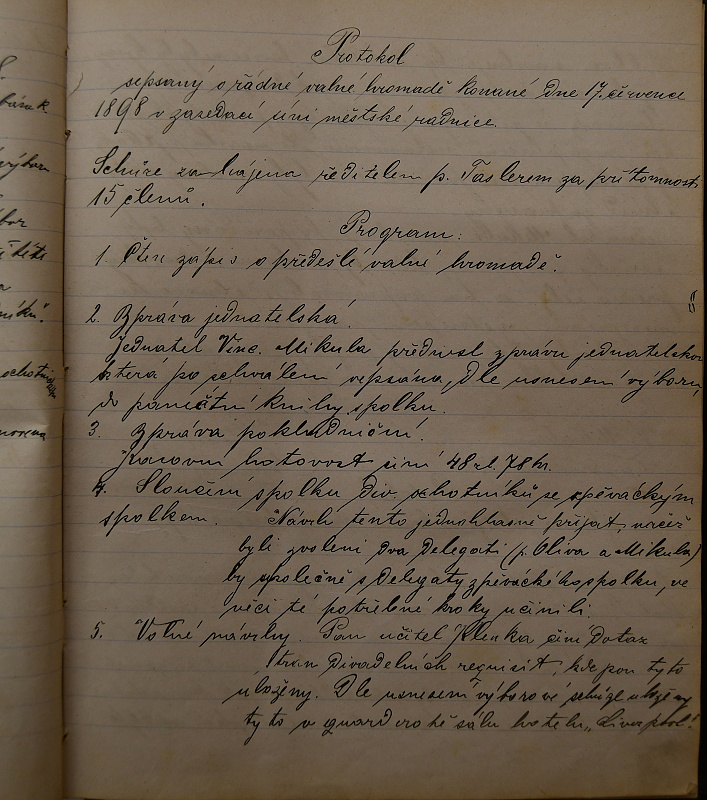 Protokol
sepsaný o řádné valné hromadě konané dne 17. července
1898 v zasedací síni městské radnice.
Schůze zahájena ředitelem p. Táslerem za přítomnosti
15 členů.
Program:
1. Čten zápis o předešlé valné hromadě.
2. Zpráva jednatelská.
Jednatel Venc. Mikula přednesl zprávu jednatelskou
ktera po schvalení vepsána, dle usnesení výboru,
do pamětní knihy spolku.
3. Zpráva pokladniční.
hotovost činí 48 zl. 78 kr.
4. Sloučení spolku div. ochotníků se zpěváckým
spolkem. Návrh tento jednohlasně přijat, načež
byli zvoleni dva delegati (p. Oliva a Mikula)
by společně s delegaty zpěváckého spolku, ve
věci té potřebné kroky učinili.
5. Volné návrhy. Pan učitel činí dotaz
stran divadelních requisit, kde jsou tyto
uloženy. Dle usnesení výborové schůze uloženy
tyto v guarderobě sálu hotelu „Liverpool“.
bor